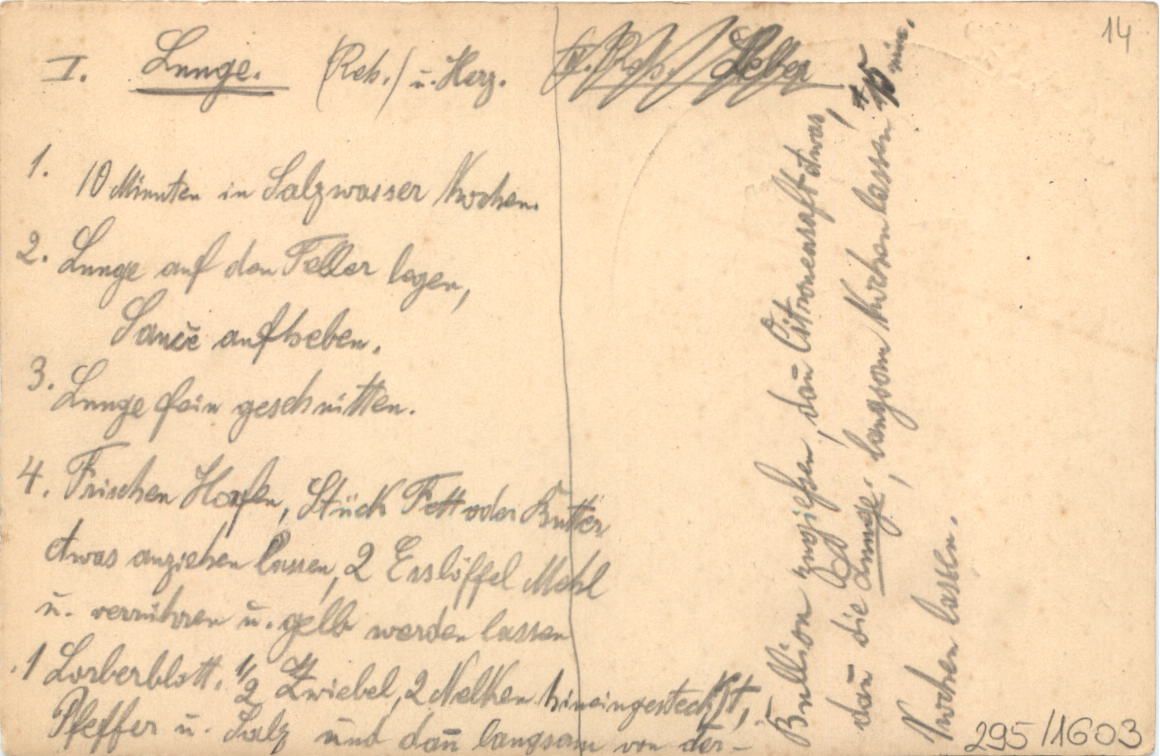 14
I. Lunge. (Reh.) u. Herz. Leber
1. 10 Minuten in Salzwasser Kochen.
2. Lunge auf den Teller legen,
Sauce aufheben.
3. Lunge fein geschnitten.
4. Frischen Hafen, Stück Fett oder Butter
etwas anziehen lassen, 2 Esslöffel Mehl
u. verrühren u. gelb werden lassen
1 Lorberblatt, 1/2 Zwiebel, 2 Nelken hineingesteckt,
Pfeffer u. Salz und dan̄ langsam von der-
Bullion zugießen, dan̄ Citronensaft etwas,
dan̄ die Lunge, langsam Kochen lassen 15 min.
Kochen lassen.
295/1603